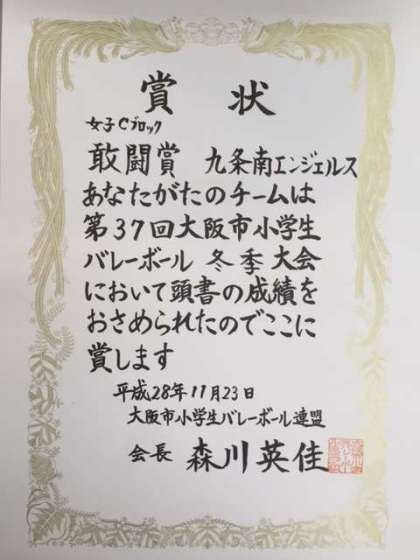 賞状
女子Cブロック
敢闘賞 九条南エンジェルス
あなたがたのチームは
第37回大阪市小学生
バレーボール 冬季大会
において頭書の成績を
おさめられたのでここに
賞します
平成28年11月23日
大阪市小学生バレーボール連盟
会長 森川英佳